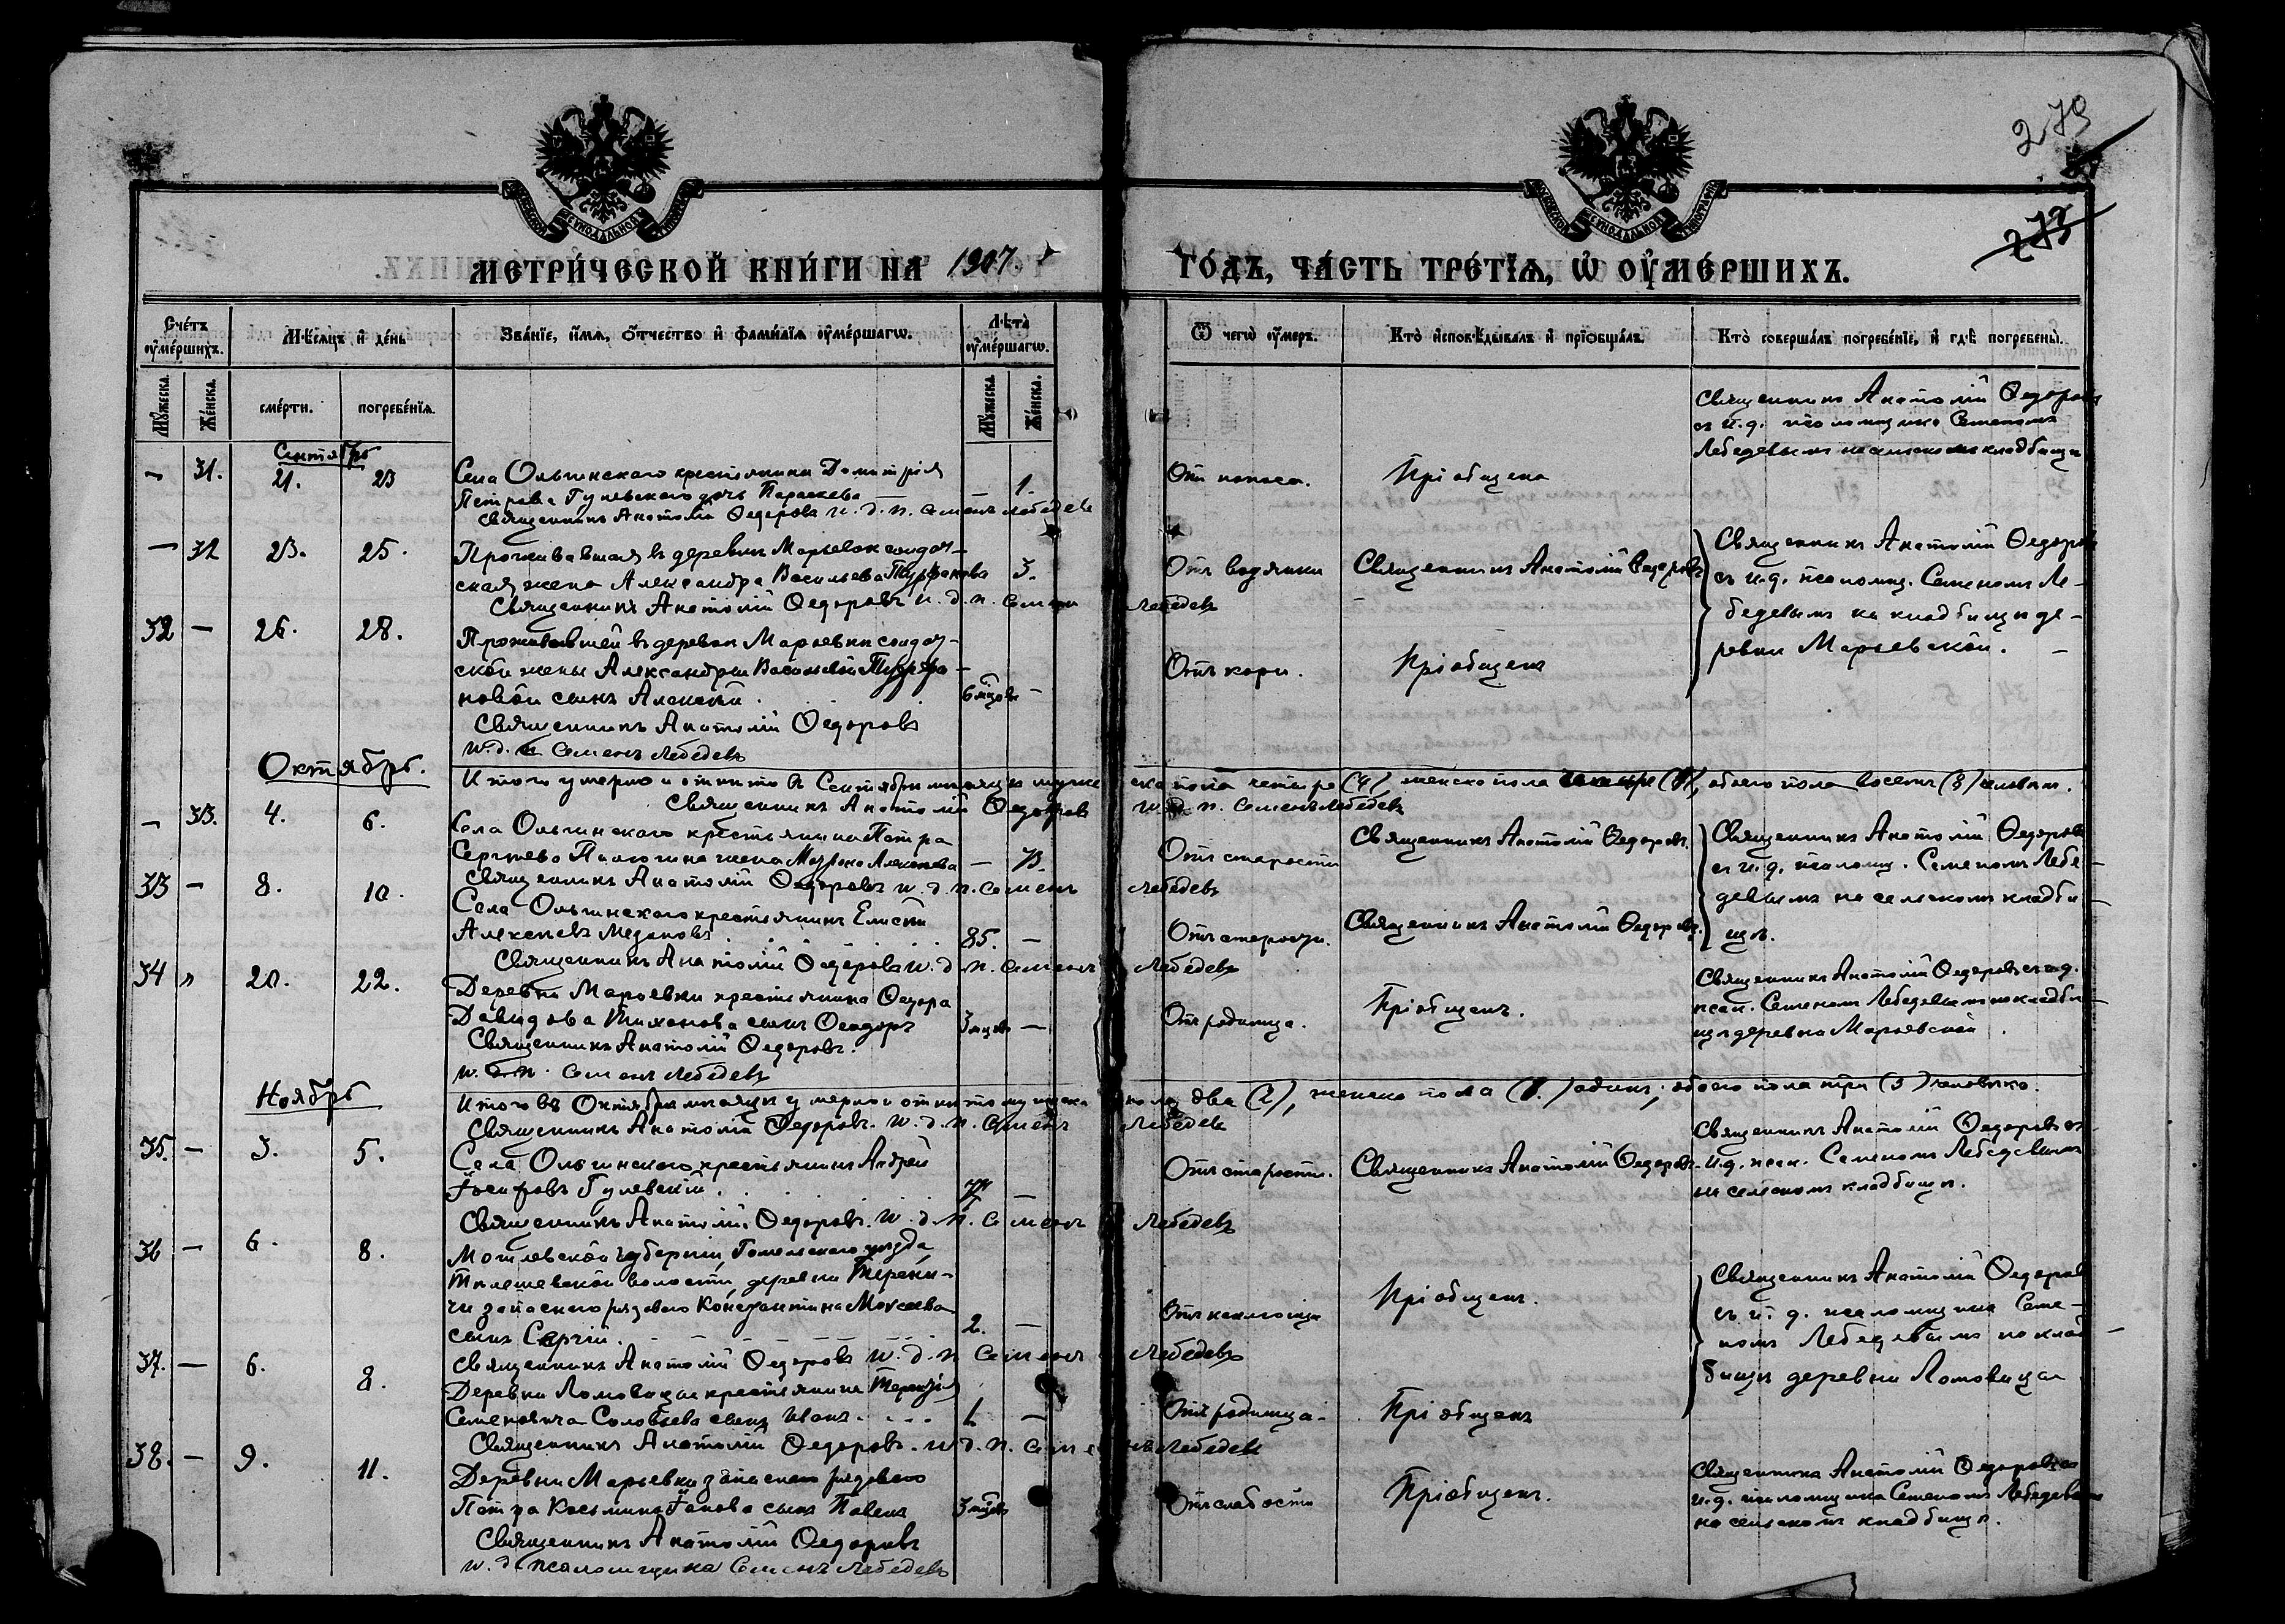 279
273
МЕТРИ́ЧЕСКОЙ КНИ́ГИ НА 1907
ГО́ДЪ, ЧА́СТЬ ТРЕ́ТЇѦ, Ѽ ОУ҆МЕ́РШИХЪ.
Сче́тъ оу҆ме́ршихъ.
Мѣ́сяцъ и҆ де́нь
Зва́нїе, и҆́мѧ, ѻ҆́тчество и҆ фами́лїѧ оу҆ме́ршагѡ.
Лѣ́та оу҆ме́ршагѡ.
Ѿ чегѡ̀ оу҆́меръ.
Кто̀ и҆сповѣ́дывалъ и҆ прїѡбща́лъ.
Кто̀ соверша́лъ погребе́нїе, и҆ гдѣ̀ погребены̀.
Мꙋ́жеска.
Же́нска.
сме́рти.
погребе́нїѧ.
Мꙋ́жеска.
Же́нска.
Сентябрь
— 31. 21. 23
Села Ольгинскаго крестьянина Димитрія
Петрова Гулевскаго дочь Параскева — 1.
Священникъ Анатолій Ѳедоровъ и. д. п. Семенъ Лебедевъ
Отъ поноса.
Пріобщена
Священникъ Анатолій Ѳедоровъ
съ и. д. псаломщика Семеномъ
Лебедевымъ на сельскомъ кладбищѣ
— 32 23. 25.
Проживавшая въ деревнѣ Марьевкѣ солдат-
ская жена Александра Васильева 3.
Священникъ Анатолій Ѳедоровъ и. д. п. Семенъ Лебедевъ
Отъ водянки
Священникъ Анатолій Ѳедоровъ
Священникъ Анатолій Ѳедоровъ
съ и. д. псаломщ. Семеномъ Ле-
бедевымъ на кладбищѣ де-
ревни Марьевской.
32 — 26. 28.
Проживавшей въ деревнѣ Марьевкѣ солдат-
ской жены Александры Васильевой
новой сынъ Алексѣй. 6 мѣцовъ —
Священникъ Анатолій Ѳедоровъ
и. д. п. Семенъ Лебедевъ
Отъ кори.
Пріобщенъ
Октябрь.
Итого умерло и отпѣто въ Сентябрѣ мѣсяцѣ мужеска пола четыре (4), женска пола четыре (4), обоего пола восемь (8) человѣкъ.
Священникъ Анатолій Ѳедоровъ и. д. п. Семенъ Лебедевъ
— 33. 4. 6.
Села Ольгинскаго крестьянина Петра
Сергѣева жена Матрона Алексѣева — 73.
Священникъ Анатолій Ѳедоровъ и. д. п. Семенъ Лебедевъ
Отъ старости
Священникъ Анатолій Ѳедоровъ.
Священникъ Анатолій Ѳедоровъ
съ и. д. псаломщ. Семеномъ Лебе-
девымъ на сельскомъ кладби-
щѣ.
33 — 8. 10.
Села Ольгинскаго крестьянинъ Елисей
Алексѣевъ Медяковъ 85. —
Священникъ Анатолій Ѳедоровъ и. д. п. Семенъ Лебедевъ
Отъ старости.
Священникъ Анатолій Ѳедоровъ.
34 „ 20. 22.
Деревни Марьевки крестьянина Ѳедора
Давидова Тихонова сынъ Ѳеодоръ 3 мѣцовъ —
Священникъ Анатолій Ѳедоровъ.
и. д. п. Семенъ Лебедевъ
Отъ родимца.
Пріобщенъ.
Священникъ Анатолій Ѳедоровъ съ и. д.
псал. Семеномъ Лебедевымъ на кладби-
щѣ деревни Марьевской.
Ноябрь
Итого въ Октябрѣ мѣсяцѣ умерло и отпѣто мужска пола два (2), женска пола (1.) одинъ, обоего пола три (3) человѣка.
Священникъ Анатолій Ѳедоровъ. и. д. п. Семенъ Лебедевъ
35. — 3. 5.
Села Ольгинскаго крестьянинъ Андрей
Іосифовъ Гулевскій. 77 —
Священникъ Анатолій Ѳедоровъ. и. д. п. Семенъ Лебедевъ
Отъ старости.
Священникъ Анатолій Ѳедоровъ.
Священникъ Анатолій Ѳедоровъ съ
и. д. псал. Семеномъ Лебедевымъ
на сельскомъ кладбищѣ.
36 — 6. 8.
Могилевской губерніи, Гомельскаго уѣзда,
волости, деревни Терени-
чи запаснаго рядового Константина Моисеева
сынъ Сергій. 2. —
Священникъ Анатолій Ѳедоровъ и. д. п. Семенъ Лебедевъ
Отъ коклюша
Пріобщенъ.
Священникъ Анатолій Ѳедоровъ
съ и. д. псаломщика Семе-
номъ Лебедевымъ на клад-
бищѣ деревни Ломовицы
37. — 6. 8.
Деревни Ломовицы крестьянина Терентія
Семеновича Соловьева сынъ Иванъ. 1 —
Священникъ Анатолій Ѳедоровъ. и. д. п. Семенъ Лебедевъ
Отъ родимца.
Пріобщенъ
38. — 9. 11.
Деревни Марьевки запаснаго рядового
Петра Косьмина сынъ Павелъ 3 мѣцовъ
Священникъ Анатолій Ѳедоровъ
и. д. псаломщика Семенъ Лебедевъ
Отъ слабости
Пріобщенъ.
Священникъ Анатолій Ѳедоровъ съ
и. д. псаломщика Семеномъ Лебедевымъ
на сельскомъ кладбищѣ.